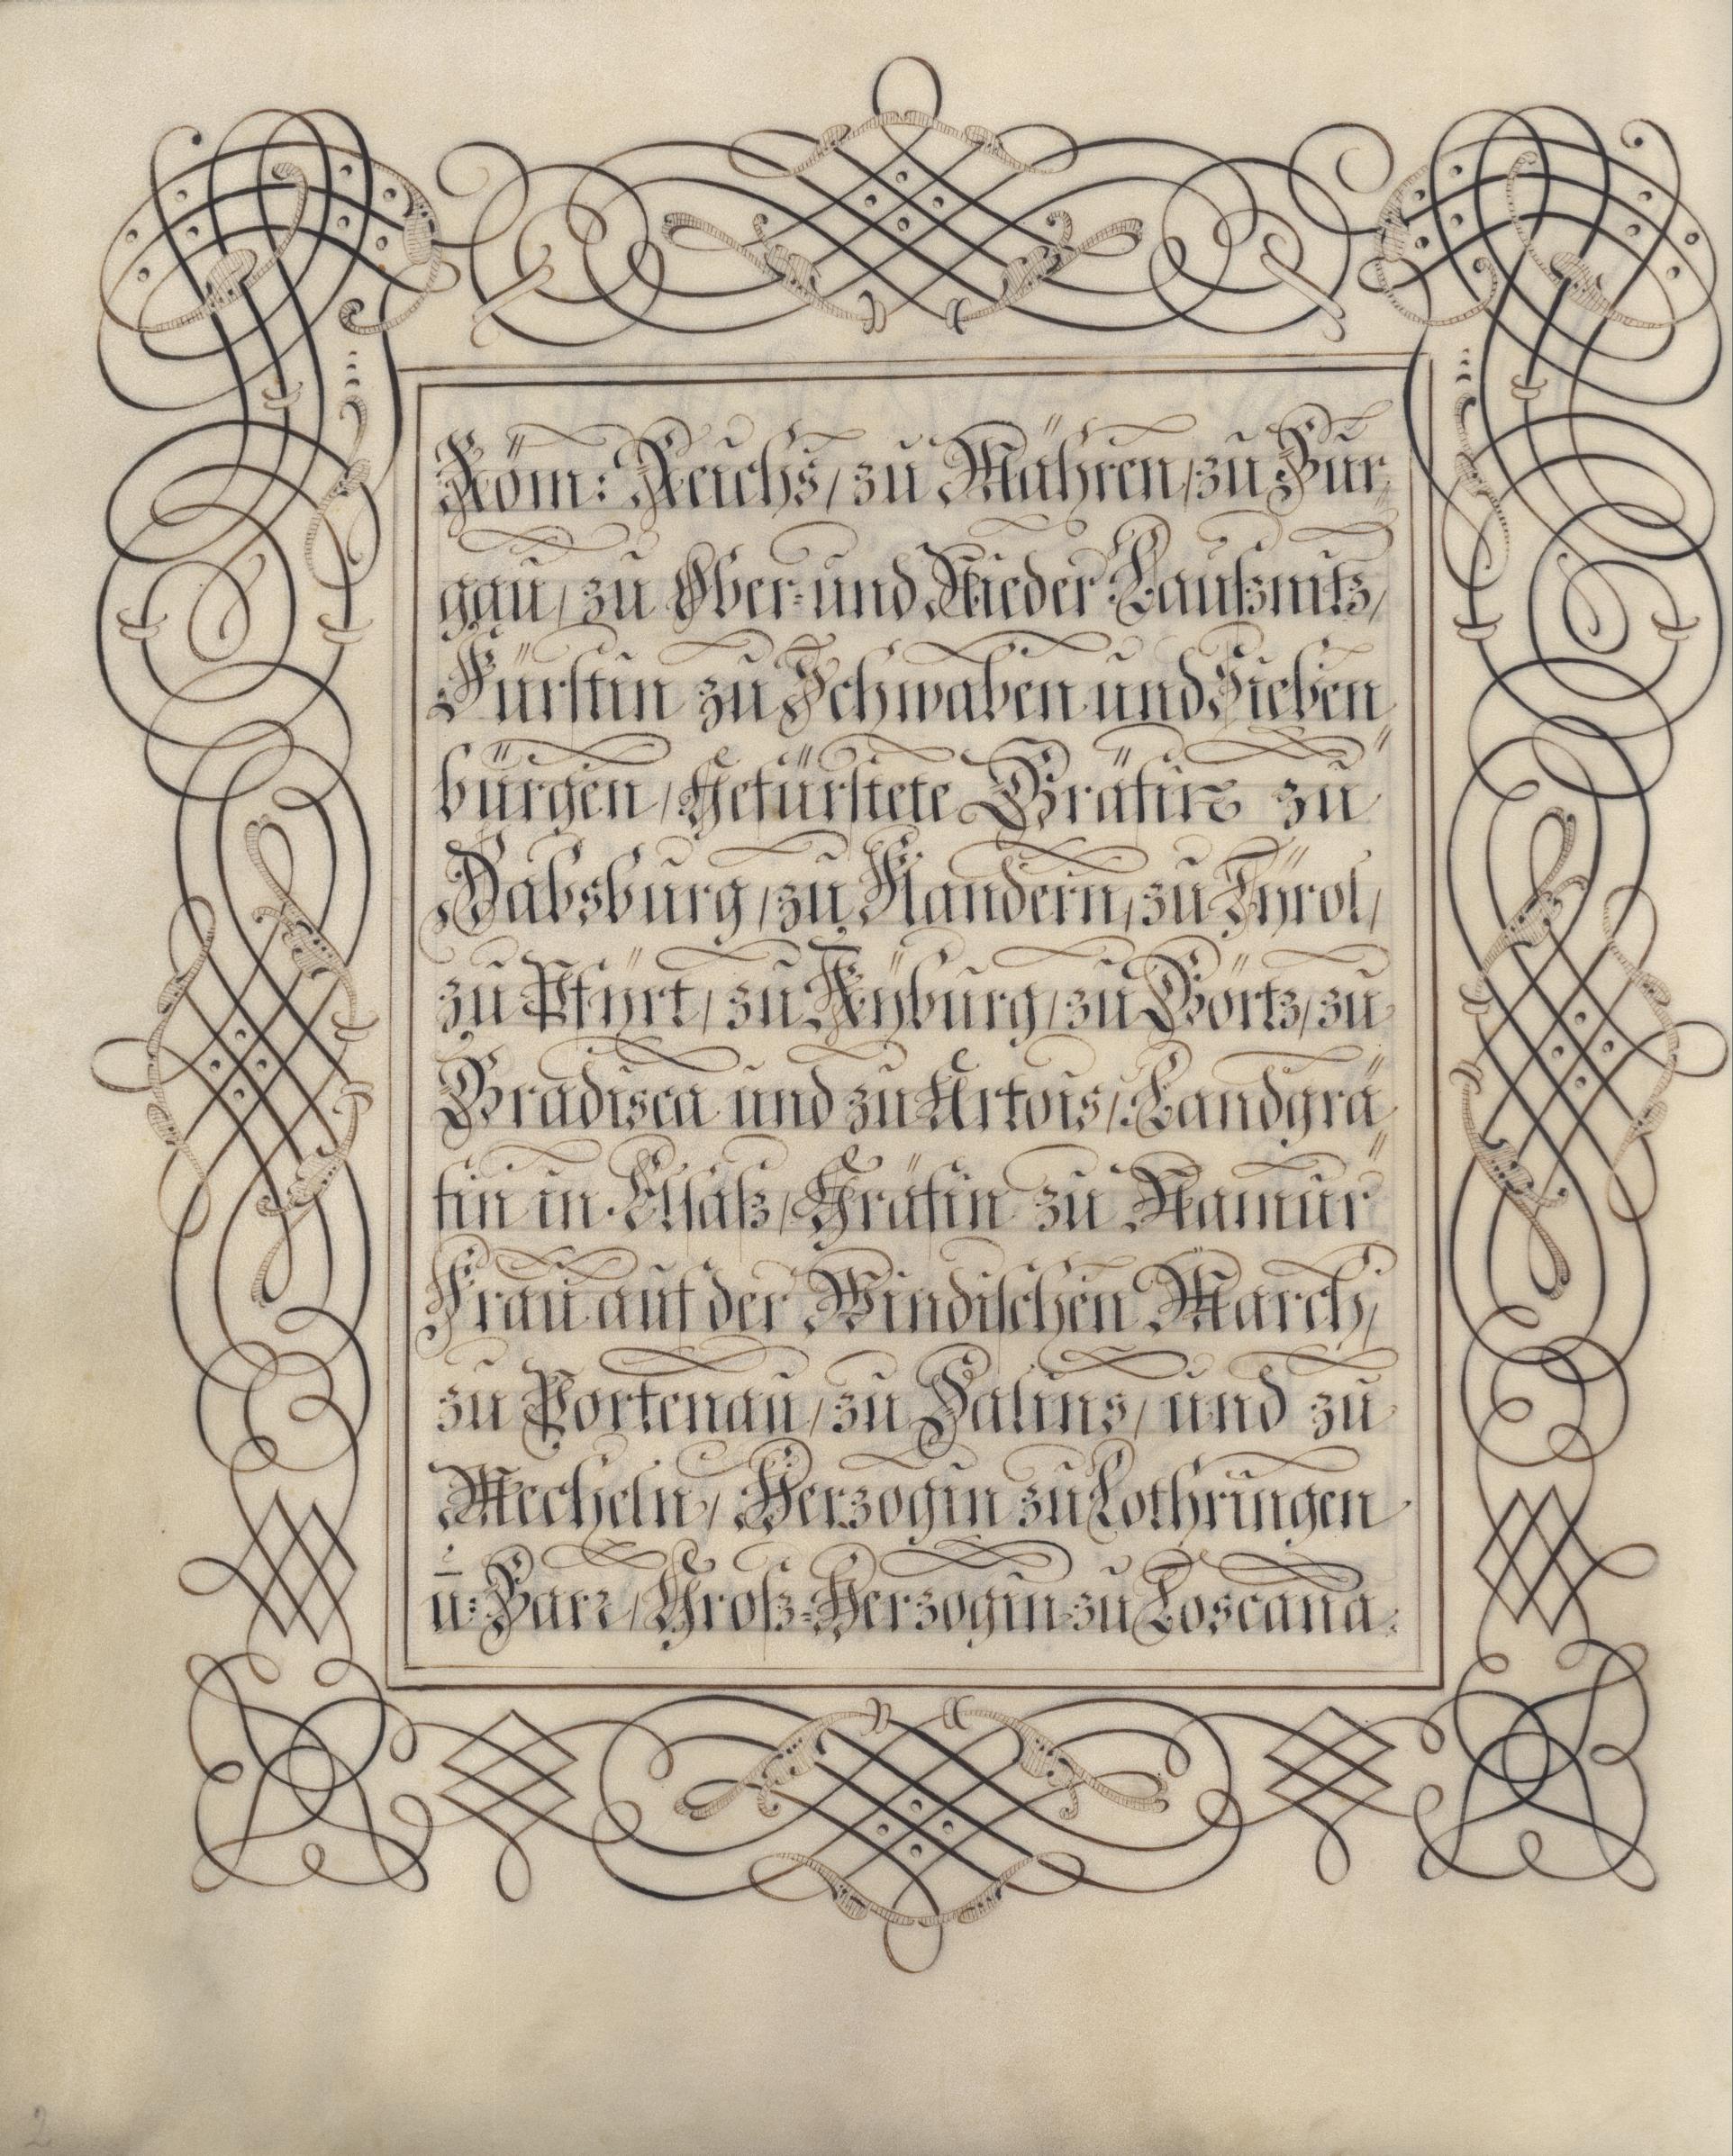 Röm: Reichs / zu Mähren / zu Bur
gäu / zu Ober= und Nieder Laußnitz /
Fürstin zu Schwaben und Sieben
bürgen / Gefürstete Gräfin zu
Habsburg / zu Flandern / zu Tÿrol /
zu Pfÿrt / zu Kÿburg / zu Görtz / zu
Gradisca und zu Artois / Landgrä
fin in Elsaß / Gräfin zu Namur
Frau auf der Windischen March /
zu Portenau / zu Salins / und zu
Mecheln / Herzogin zu Lothringen
u: Barr / Groß=Herzogin zu Toscana
2